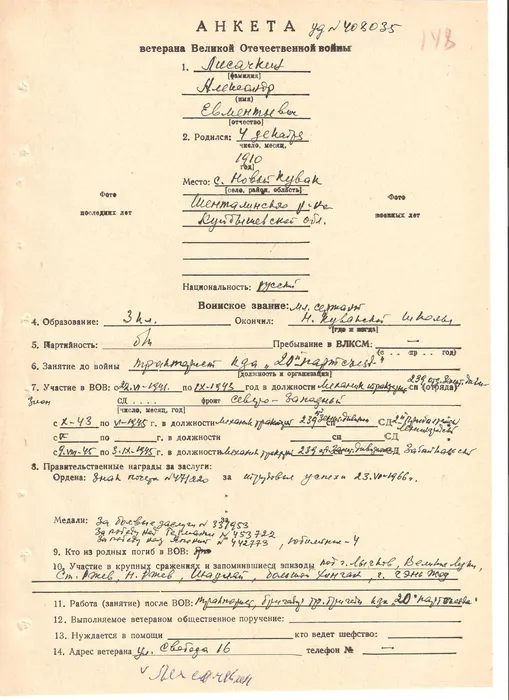 АНКЕТА уд №408035
148
ветерана Великой Отечественной войны
1. Лисачкин
[фамилия]
Александр
(имя)
Евментьевич
[отчество]
2. Родился: 4 декабря
число, месяц,
1910
год)
Место: с. Новый Кувак
[село, район, область]
Фото
последних лет
Фото
военных лет
Шенталинского р-на
Куйбышевской обл.
Национальность: русский
Воинское звание: мл. сержант
4. Образование: 3 кл. Окончил: Н. Кувакской школы
[где и когда]
5. Партийность: б/п Пребывание в ВЛКСМ: —
(с .. пр .. год)
6. Занятие до войны тракторист к-за „20 партсъезд"
[должность и организация]
7. Участие в ВОВ: с 22.VI-1941. по IX-1943 год в должности механик 239 сп (отряда)
СД .... фронт Северо-Западный
число, месяц, год)
с X-43 по VI-1945 г. в должности механик 239 СД
с по г. в должности сп СД
с 9.VIII-45 по 3.IX-1945 г. в должности механик 239 СД Забайкальск
8. Правительственные награды за заслуги:
Ордена: знак почета №471220 за трудовые успехи 23.VI-1966г.
Медали: За боевые заслуги №337953
За победу над Германией №453722
За победу над Японией №442773, юбилейные-4
9. Кто из родных погиб в ВОВ:
10. Участие в крупных сражениях и запомнившиеся эпизоды под г. Лычков, Великие Луки,
Ст. Ржев, Н. Ржев, большой Хинган, г.
11. Работа (занятие) после ВОВ: тракторист, бригадир тр. бригады к-за 20 партсъезда"
12. Выполняемое ветераном общественное поручение:
13. Нуждается в помощи кто ведет шефство:
14. Адрес ветерана ул. Свобода 16 телефон № —